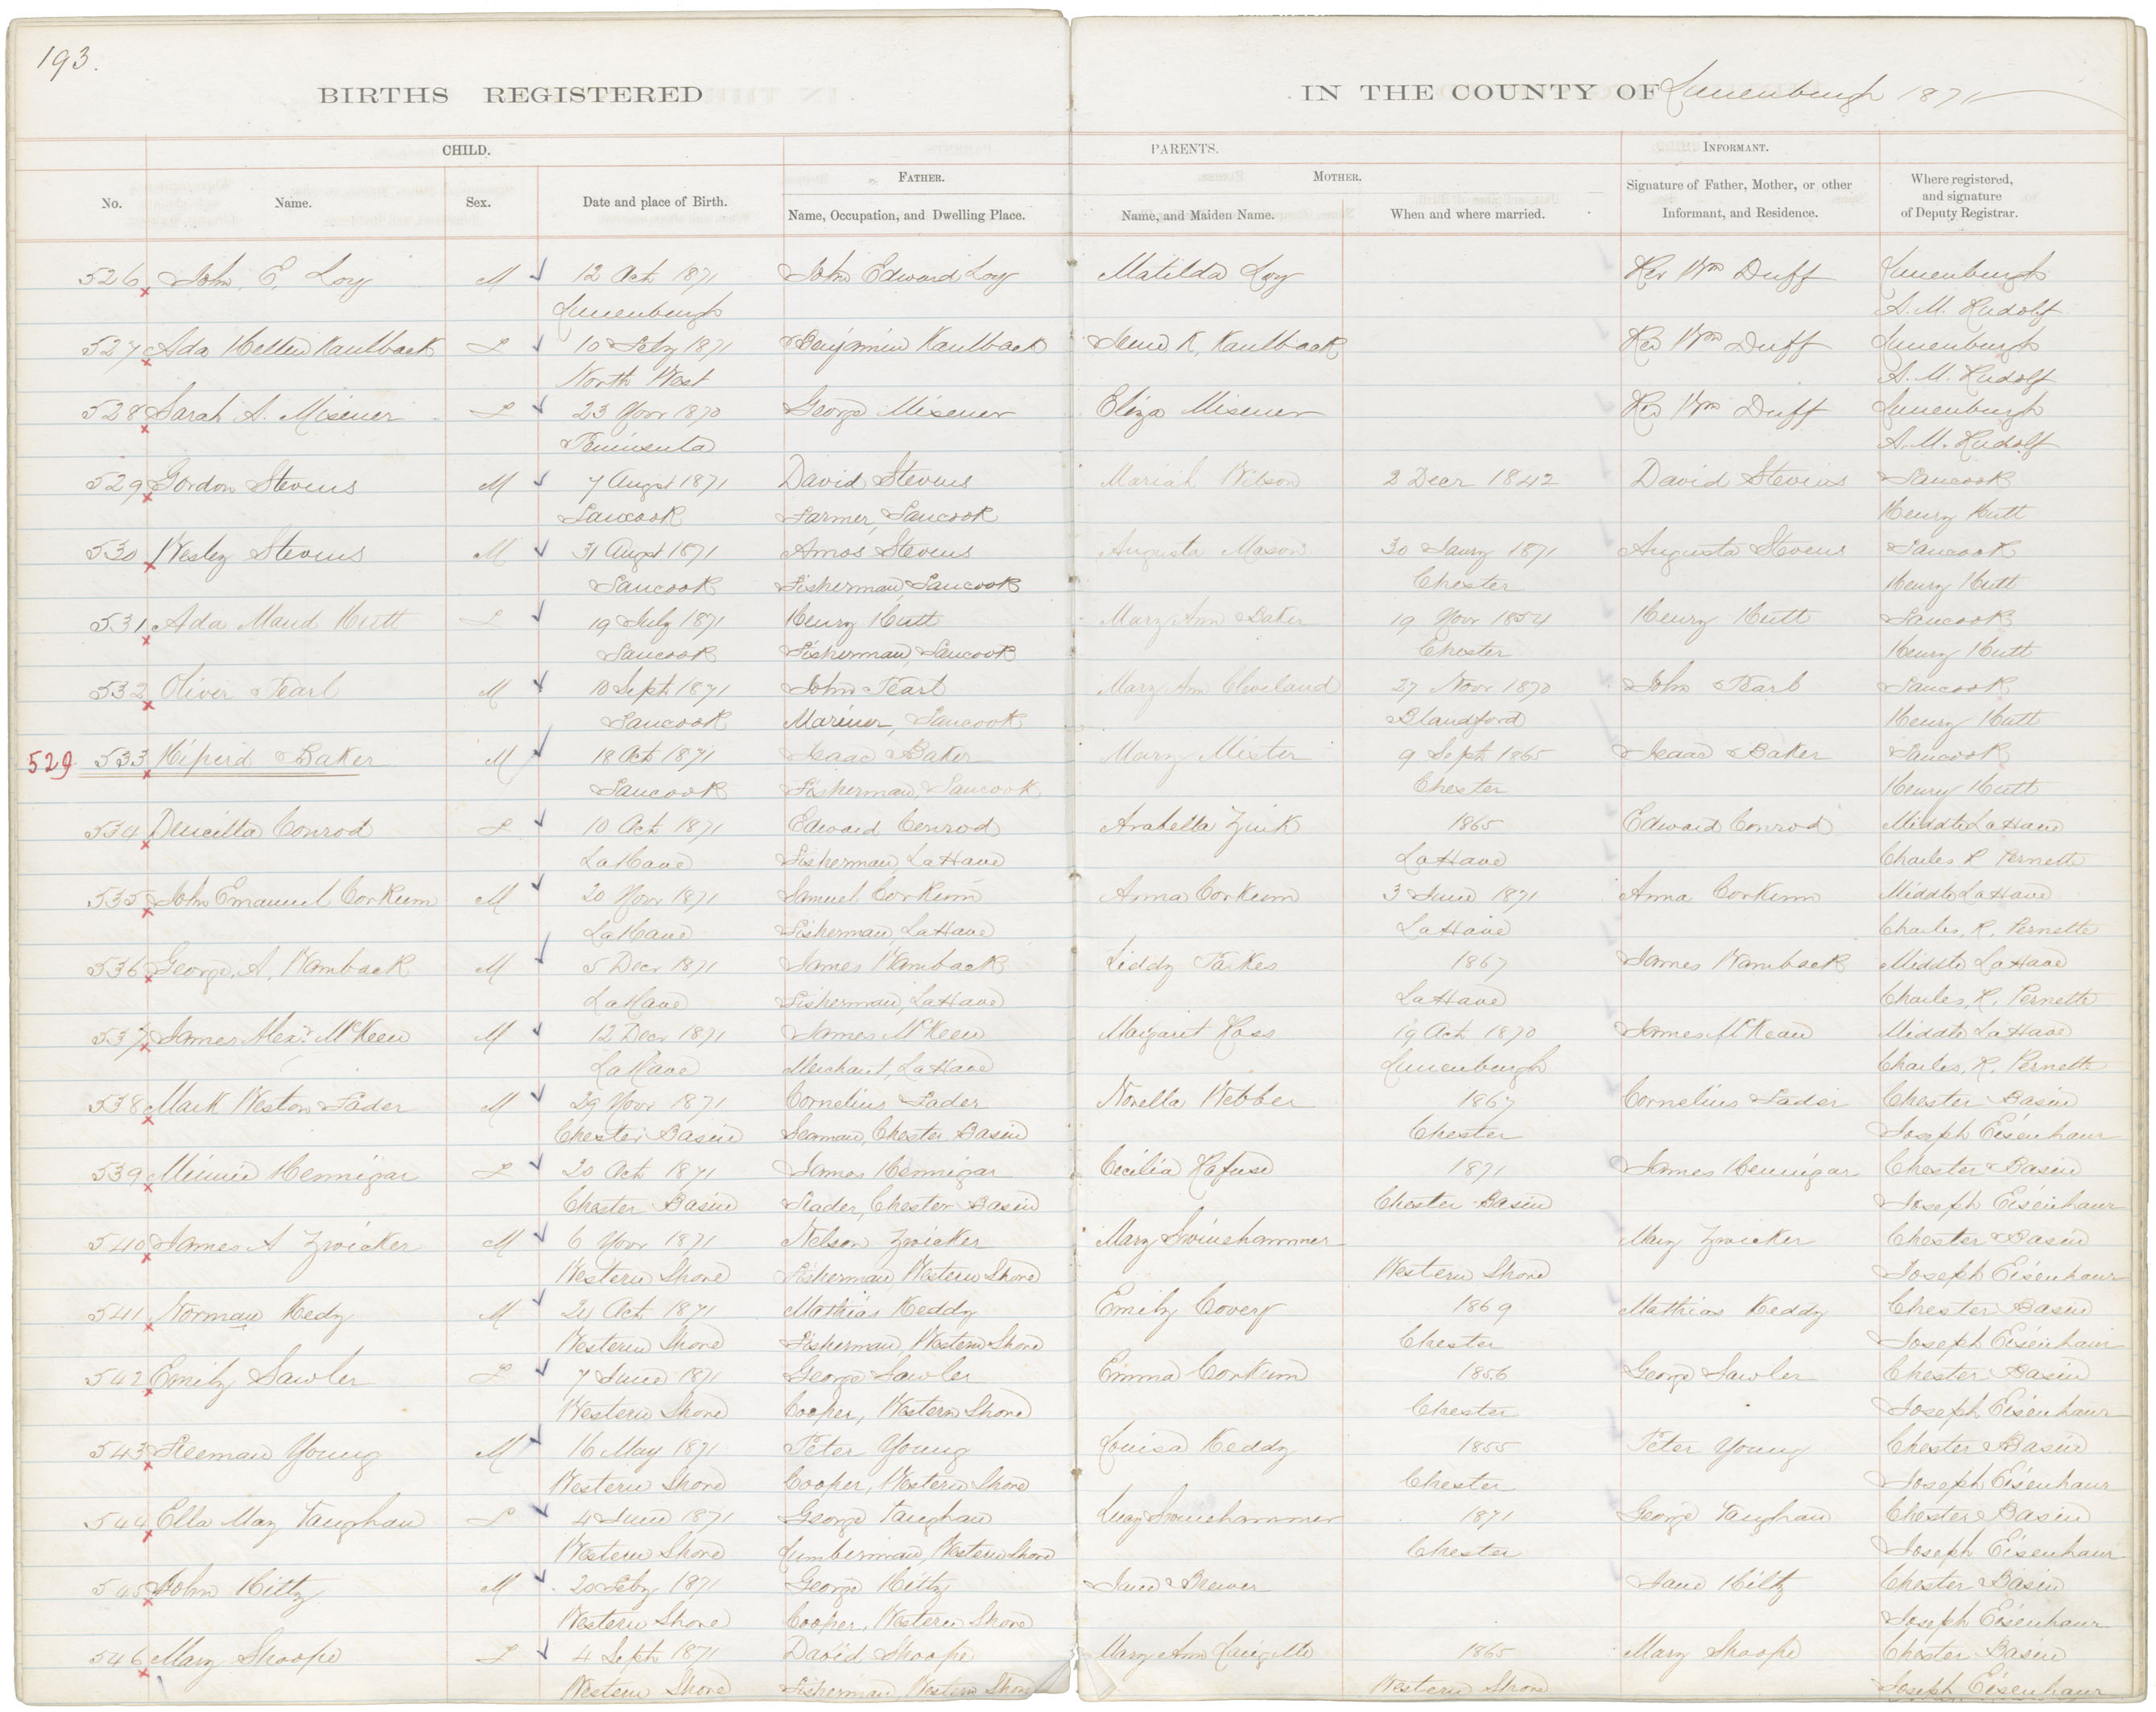 193.
BIRTHS REGISTERED IN THE COUNTY OF Lunenburgh 1871
CHILD. PARENTS. INFORMANT.
FATHER. MOTHER.
No. Name. Sex. Date and place of Birth. Name, Occupation, and Dwelling Place. Name, and Maiden Name. When and where married. Signature of Father, Mother, or other Informant, and Residence. Where registered, and signature of Deputy Registrar.
526 John E. Loy M 12 Oct 1871 John Edward Loy Matilda Loy Rev Wm Duff Lunenburgh
Lunenburgh A. M. Rudolf
527 Ada Hellen Kaulback F 10 Feby 1871 Benjamin Kaulback K. Kaulback Rev Wm Duff Lunenburgh
North West A. M. Rudolf
528 Sarah A. Misener F 23 Novr 1870 George Misener Eliza Misener Rev Wm Duff Lunenburgh
Peninsula A. M. Rudolf
529 Gordon Stevens M 7 Augst 1871 David Stevens Mariah Wilson 2 Decr 1842 David Stevens Tancook
Tancook Farmer, Tancook Henry Hutt
530 Wesley Stevens M 31 Augst 1871 Amos Stevens Augusta Mason 30 Jany 1871 Augusta Stevens Tancook
Tancook Fisherman, Tancook Chester Henry Hutt
531 Ada Maud Hutt F 19 July 1871 Henry Hutt Mary Ann Baker 19 Novr 1854 Henry Hutt Tancook
Tancook Fisherman, Tancook Chester Henry Hutt
532 Oliver Pearl M 10 Sept 1871 John Pearl Mary Ann Cleveland 27 Novr 1870 John Pearl Tancook
Tancook Mariner, Tancook Blandford Henry Hutt
529 533 Hiperd Baker M 18 Oct 1871 Isaac Baker Mary Mister 9 Sept 1865 Isaac Baker Tancook
Tancook Fisherman, Tancook Chester Henry Hutt
534 Dencilla Conrod F 10 Oct 1871 Edward Conrod Arabella Zink 1865 Edward Conrod Middle LaHave
LaHave Fisherman, LaHave LaHave Charles R Pernette
535 John Emanuel Corkum M 20 Novr 1871 Samuel Corkum Anna Corkum 3 June 1871 Anna Corkum Middle LaHave
LaHave Fisherman, LaHave LaHave Charles, R. Pernette
536 George, A, Wamback M 5 Decr 1871 James Wamback Liddy Parkes 1867 James Wamback Middle LaHave
LaHave Fisherman, LaHave LaHave Charles, R. Pernette
537 James Alexr McKeen M 12 Decr 1871 James McKeen Margaret Ross 19 Oct 1870 James McKean Middle LaHave
LaHave Merchant, LaHave Lunenburgh Charles, R. Pernette
538 Mark Weston Fader M 29 Novr 1871 Cornelius Fader Novella Webber 1867 Cornelius Fader Chester Basin
Chester Basin Seaman, Chester Basin Chester Joseph Eisenhaur
539 Minnie Hennigar F 20 Oct 1871 James Hennigar Cecilia Hafuse 1871 James Hennigar Chester Basin
Chester Basin Trader, Chester Basin Chester Basin Joseph Eisenhaur
540 James A Zwicker M 6 Novr 1871 Nelson Zwicker Mary Swinehammer Mary Zwicker Chester Basin
Western Shore Fisherman, Western Shore Western Shore Joseph Eisenhaur
541 Norman Kedy M 24 Oct 1871 Mathias Keddy Emily Covey 1869 Mathias Keddy Chester Basin
Western Shore Fisherman, Western Shore Chester Joseph Eisenhaur
542 Emily Sawler F 7 June 1871 George Sawler Emma Corkum 1856 George Sawler Chester Basin
Western Shore Cooper, Western Shore Chester Joseph Eisenhaur
543 Freeman Young M 16 May 1871 Peter Young Louisa Keddy 1855 Peter Young Chester Basin
Western Shore Cooper, Western Shore Chester Joseph Eisenhaur
544 Ella May Vaughan F 4 June 1871 George Vaughan Lucy Swinehammer 1871 George Vaughan Chester Basin
Western Shore Lumberman, Western Shore Chester Joseph Eisenhaur
545 John Hiltz M 20 Feby 1871 George Hiltz Jane Brewer Jane Hiltz Chester Basin
Western Shore Cooper, Western Shore Joseph Eisenhaur
546 Mary Shoope F 4 Sept 1871 David Shoope Mary Ann 1865 Mary Shoope Chester Basin
Western Shore Fisherman, Western Shore Western Shore Joseph Eisenhaur